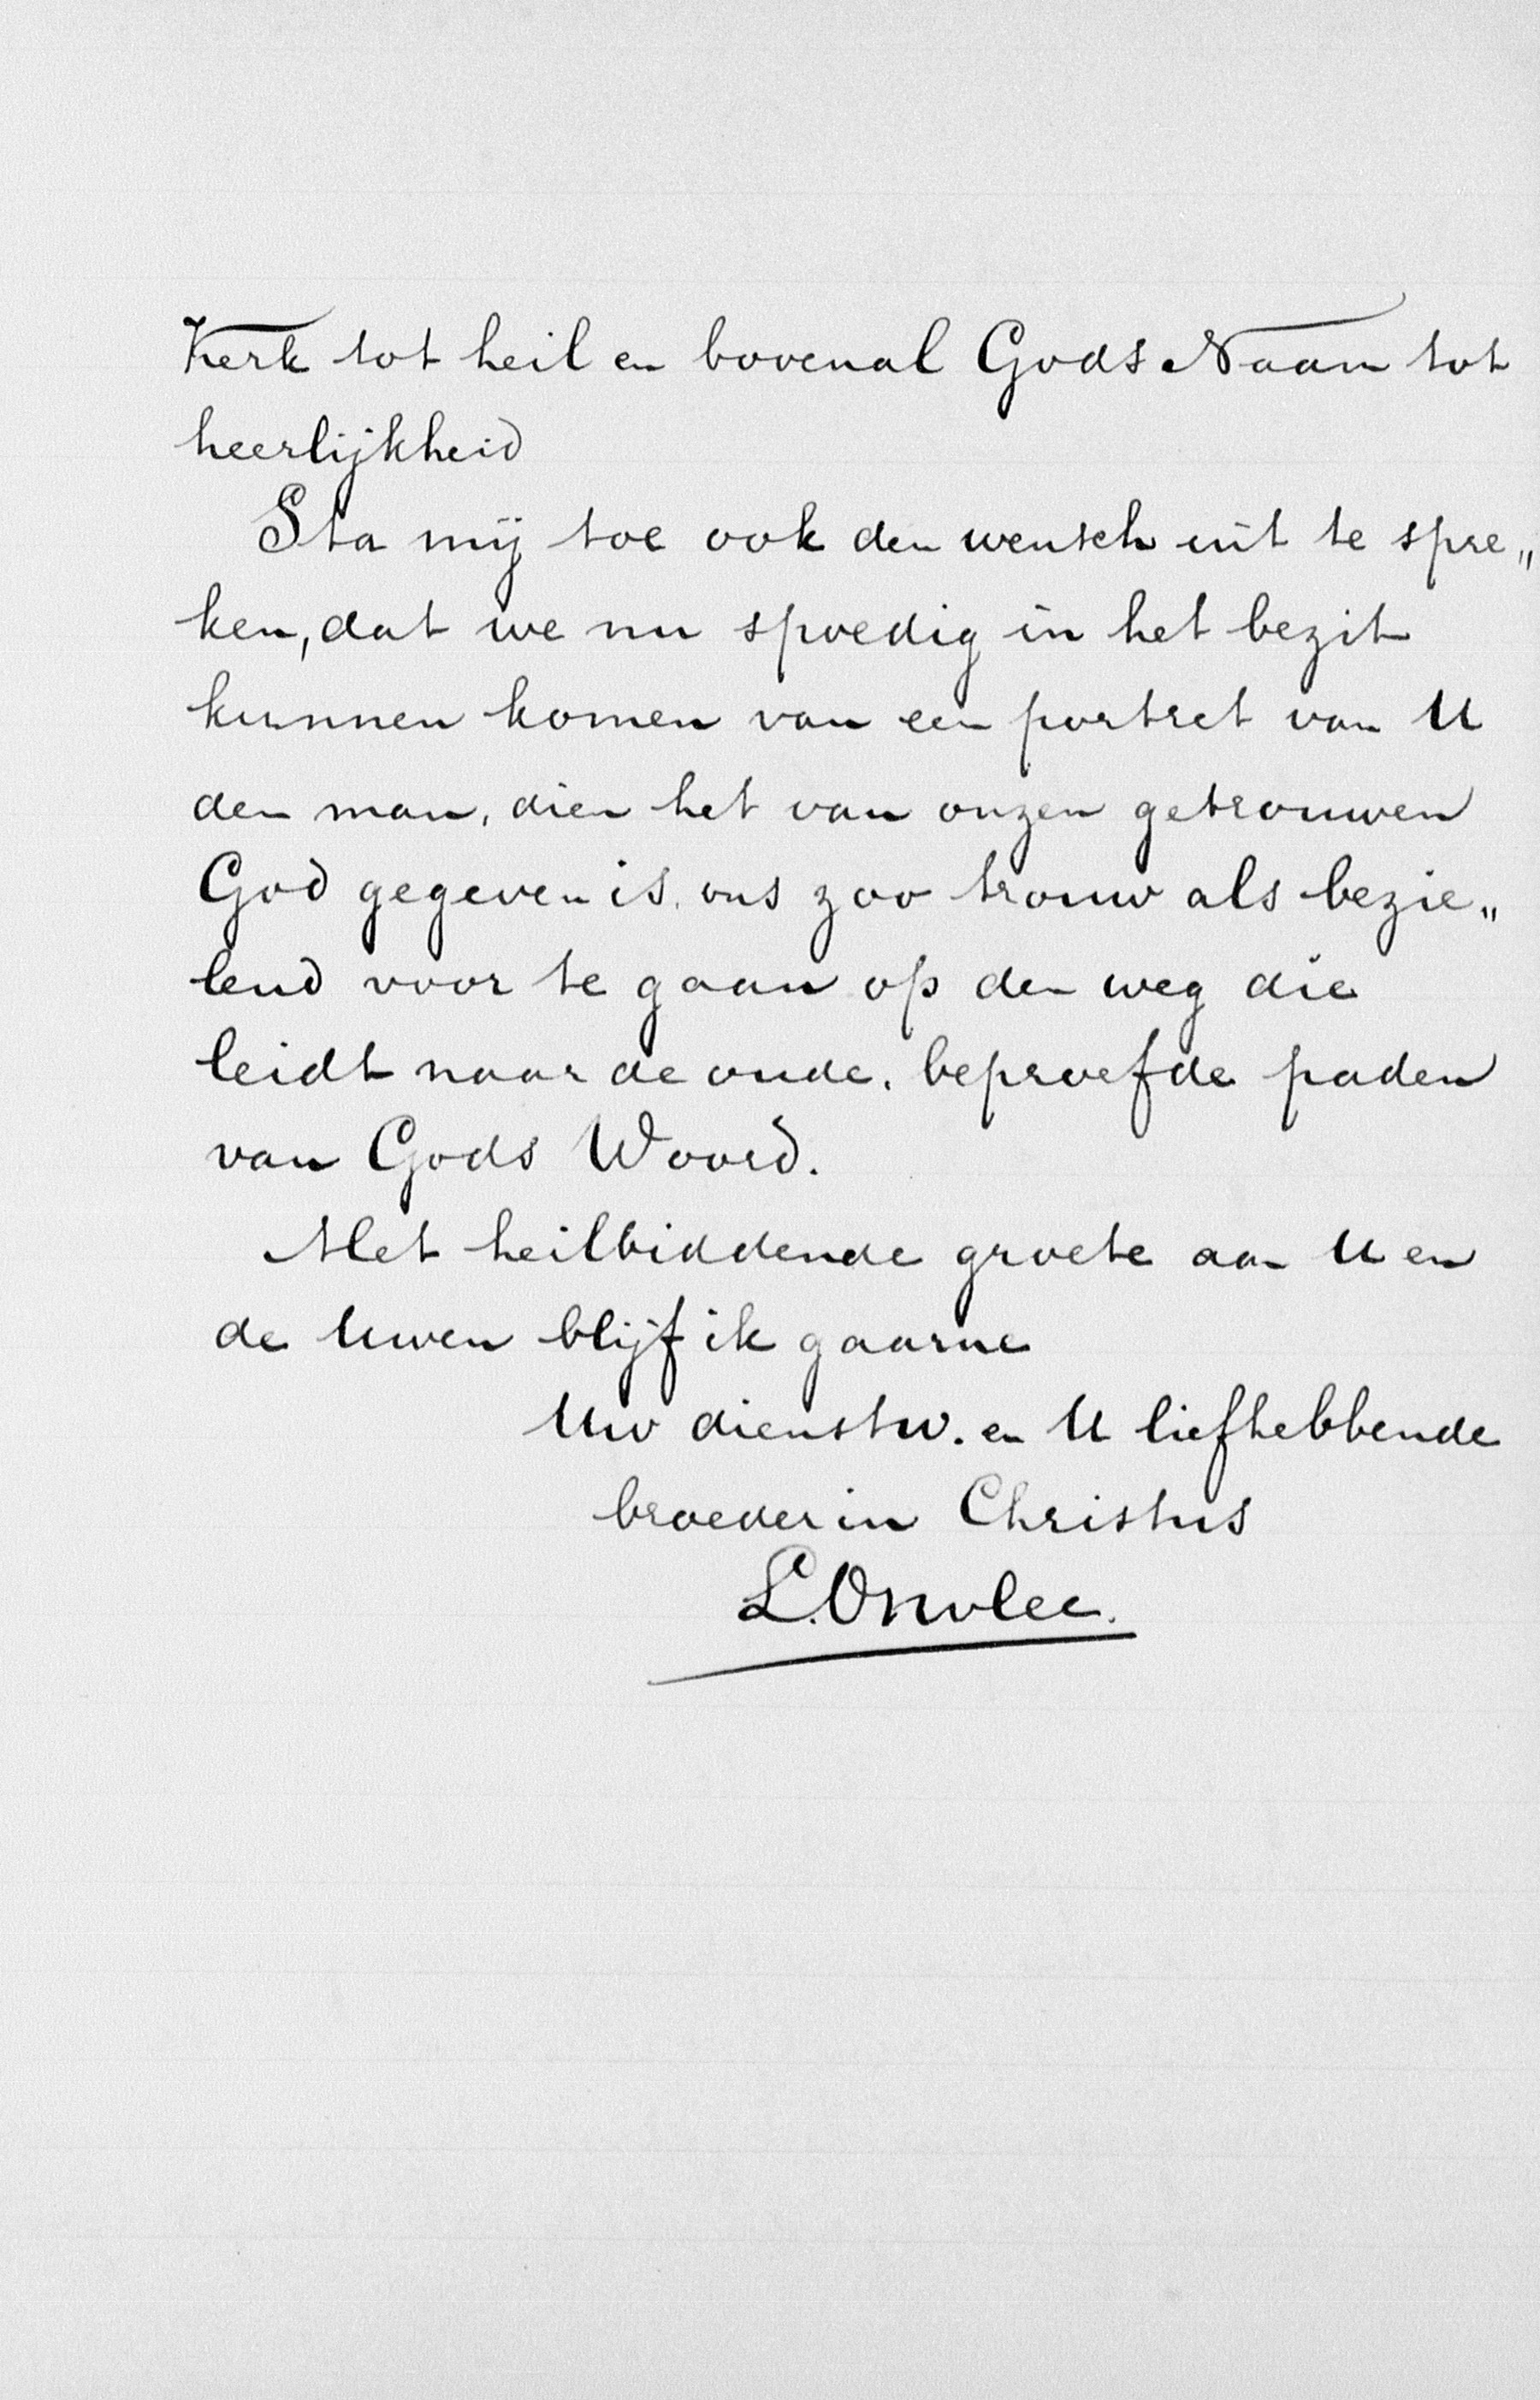 Kerk tot heil en bovenal Gods Naam tot
heerlijkheid
Sta mij toe ook den wensch uit te spre„
ken, dat we nu spoedig in het bezit
kunnen komen van een portret van U
den man, dien het van onzen getrouwen
God gegeven is, ons zoo trouw als bezie„
lend voor te gaan op den weg die
leidt naar de oude, beproefde paden
van Gods Woord.
Met heilbiddende groete aan U en
de Uwen blijf ik gaarne
Uw dienstw. en U liefhebbende
broeder in Christus
L. Onvlee.